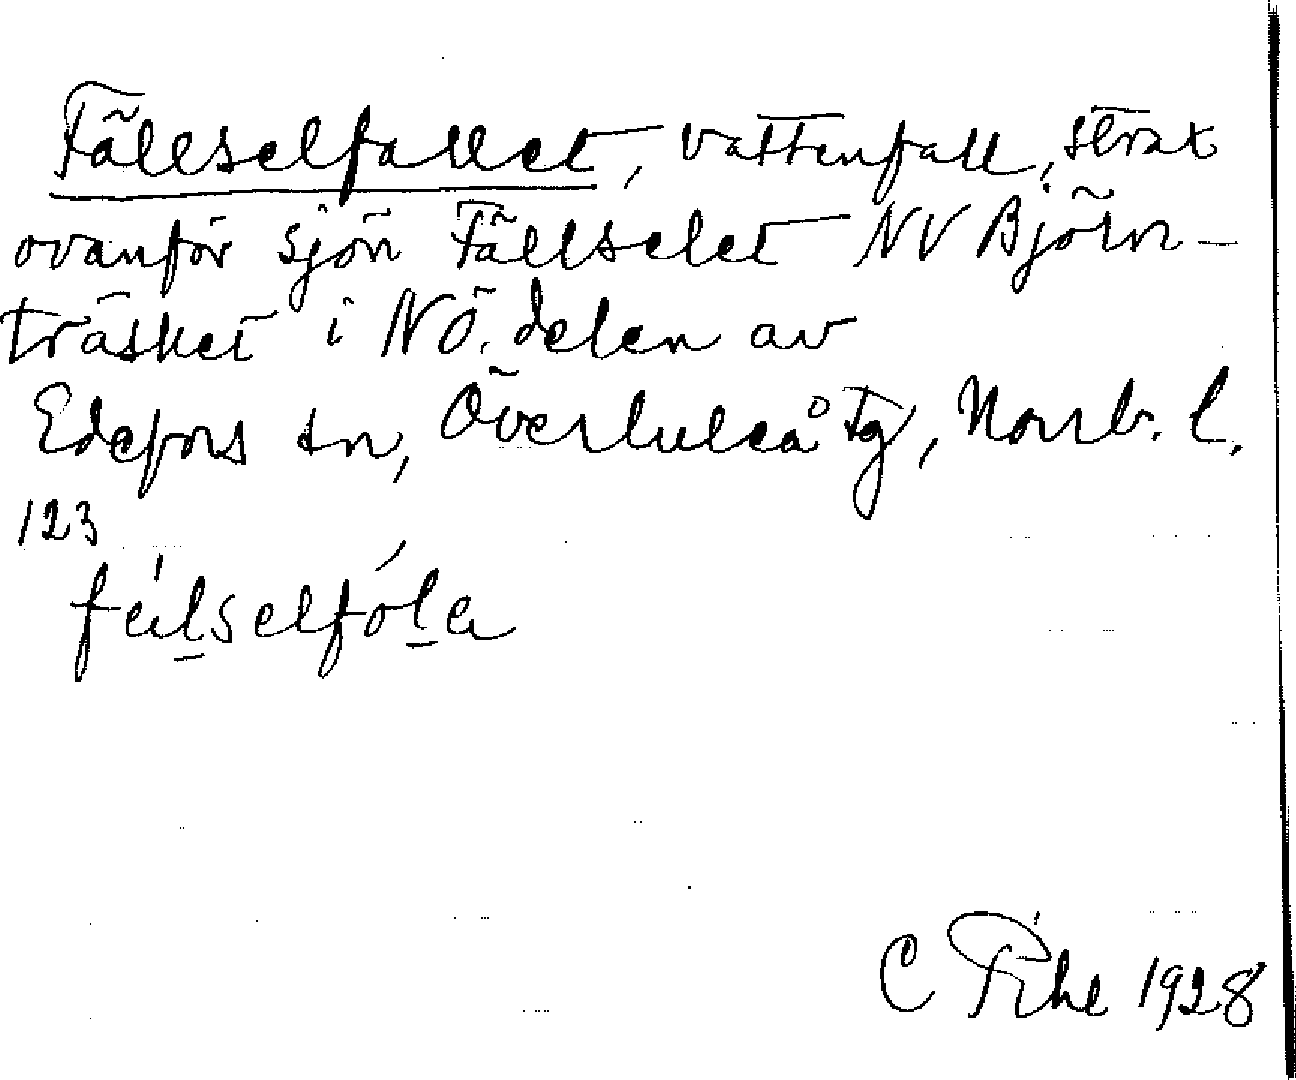 Fällselfallet, vattenfall, strax
ovanför sjön Fällselet NV Björn-
träsket i NÖ. delen av
Edefors sn, Överluleå tg, Norrb. l.
123
C Pihl 1928